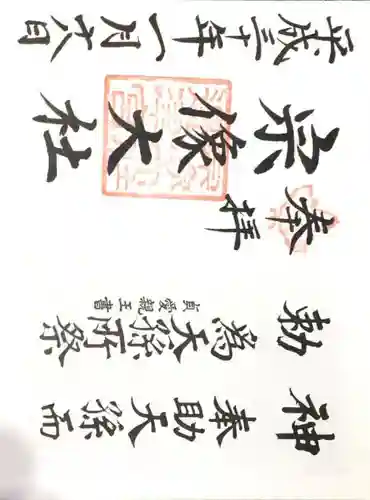 神勅
奉助天孫而
為天孫所祭
貞愛親王書
奉拝
宗像大社
平成三十年一月十六日